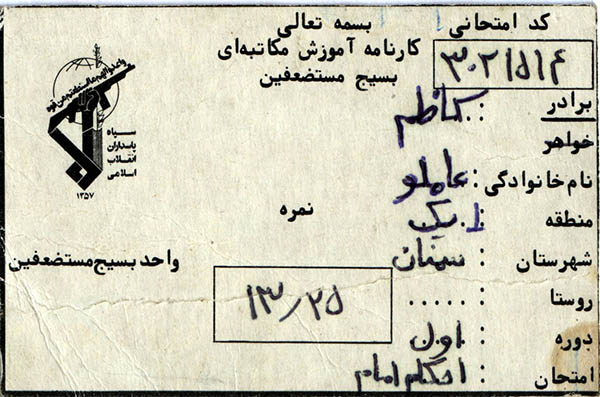 بسمه تعالی
کارنامه آموزش مکاتبه‌ای
بسیج مستضعفین
کد امتحانی
۳۰۲۱۵۱۴
برادر : کاظم
خواهر
نام خانوادگی : عاملو
منطقه : ۱ یک
شهرستان : سمنان
روستا ......
دوره : اول
امتحان : احکام امام
نمره
۱۳/۲۵
سپاه
پاسداران
انقلاب
اسلامی
۱۳۵۷
واحد بسیج مستضعفین